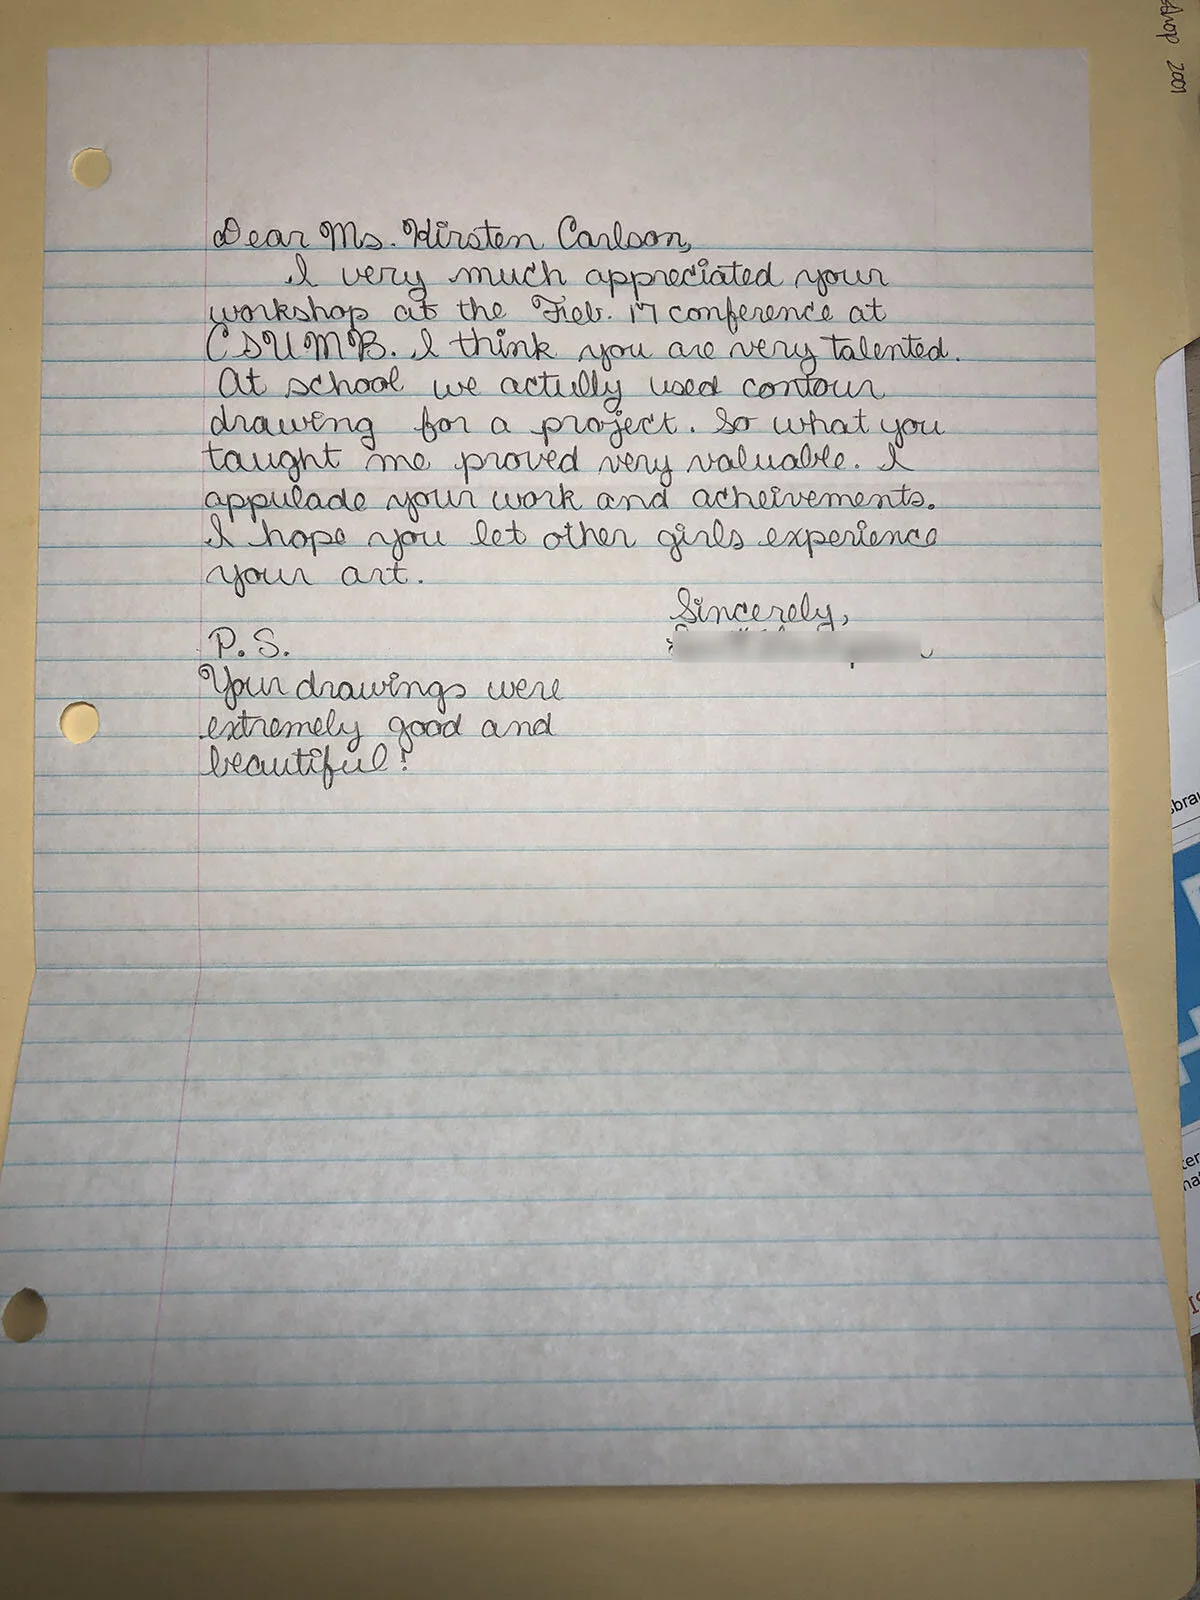 Dear Ms. Kirsten Carlson,
I very much appreciated your
workshop at the Feb. 17 conference at
CSUMB. I think you are very talented.
At school we actully used contour
drawing for a project. So what you
taught me proved very valuable. I
appulade your work and acheivements.
I hope you let other girls experience
your art.
Sincerely,
P.S.
Your drawings were
extremely good and
beautiful!
2001